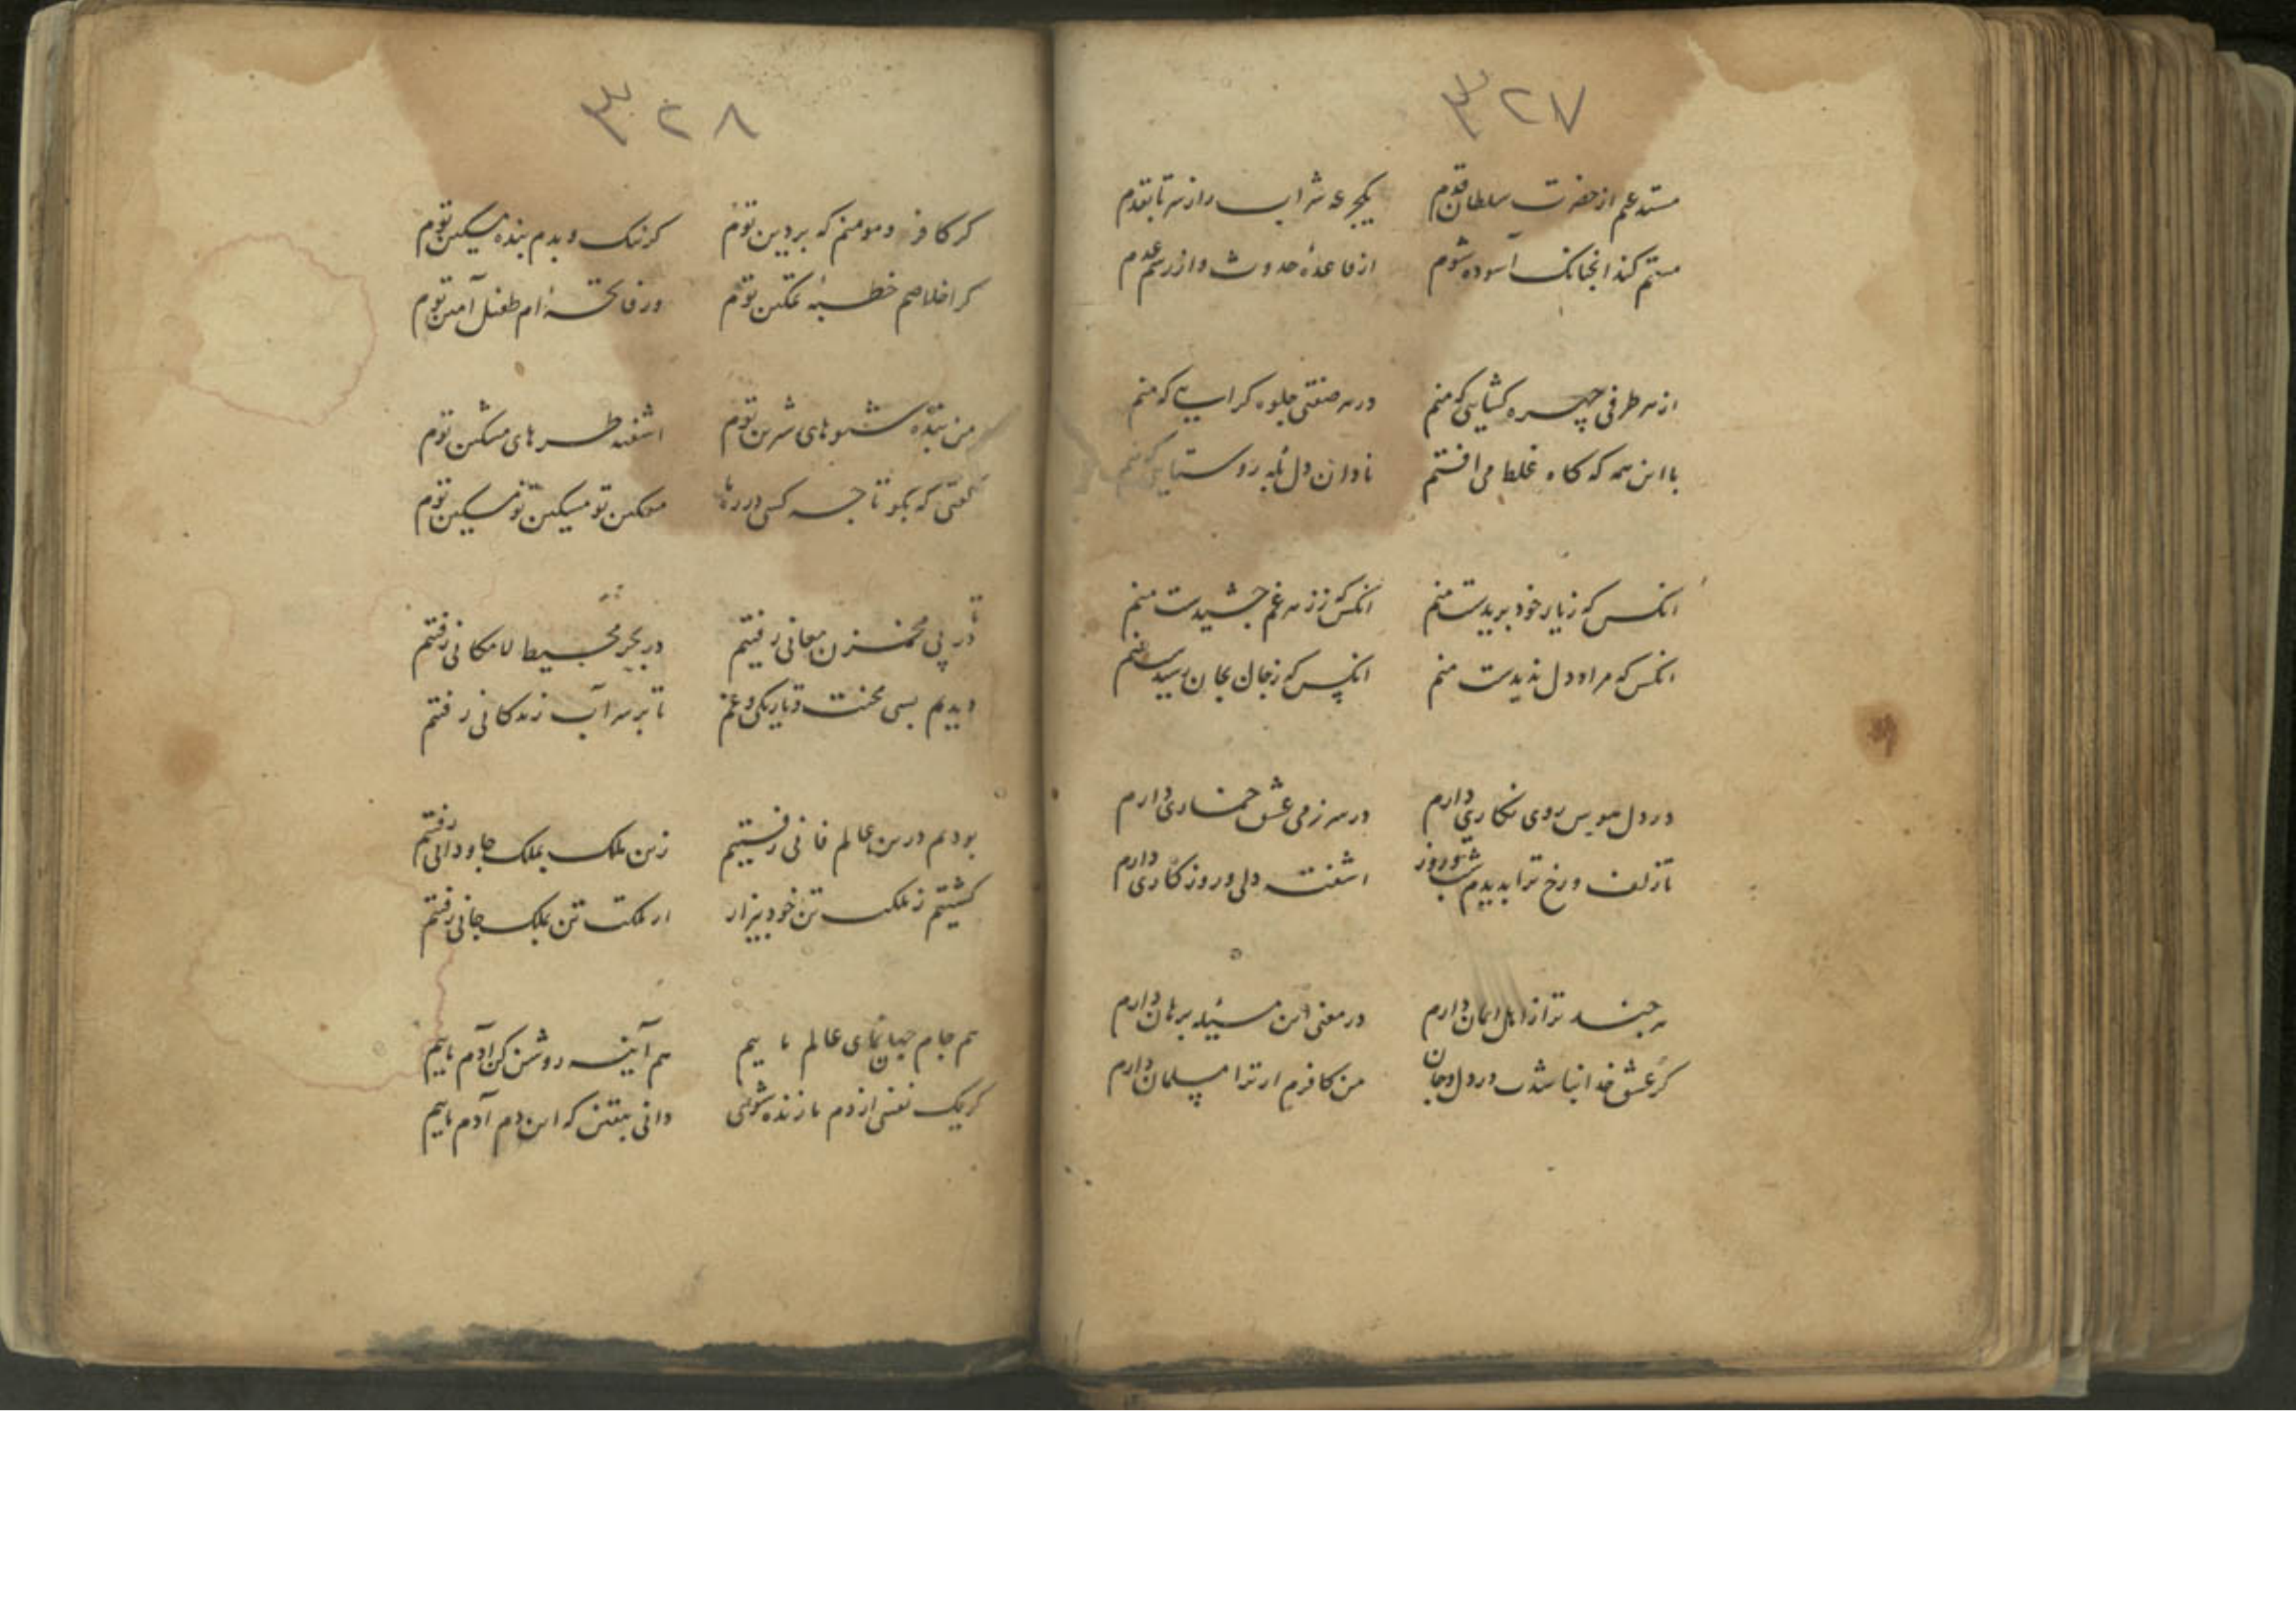 ۳۲۷
مستدعیم از حضرت سلطان قدم یکجرعه شراب را ز سر تا بقدم
مستم کند انچنانک آسوده شوم از قاعدهٔ حدوث و از رسم عدم
از هر طرفی چهره کشایی که منم در هر صفتی جلوه کرایی که منم
با این همه که کاه غلط می افتم نادان دل بله روستایی که منم
انکس که ز یار خود بریدست منم انکس که ز زهر غم چشیدست منم
انکس که مراد دل ندیدست منم انکس که ز جان بجان رسیدست منم
در دل هوس روی نکاری دارم در سر ز می عشق خماری دارم
تا زلف و رخ ترا بدیدم شب و روز اشفته دلی و روزکاری دارم
هر چند ترا ز اهل ایمان دارم در معنی این مسئله برهان دارم
کر عشق خدا نباشدت در دل و جان من کافرم ار ترا مسلمان دارم
۳۲۸
کر کافر و مومنم که بر دین توم کر نیک و بدم بنده مسکین توم
کر اخلاصم خطبهٔ تمکین توم ور فاتحهٔ ام طفل آمین توم
من بندهٔ شیوهای شیرین توم اشفته طرهای مشکین توم
کفتی که بکو تا چه کسی در ره ما مسکین تو مسکین تو مسکین توم
تا در پی مخزن معانی رفتیم در بحر محیط لامکانی رفتم
دیدم بسی محنت و تاریکی و غم تا بر سر آب زندکانی رفتم
بودیم درین عالم فانی رفتیم زین ملک بملک جاودانی رفتم
کشتیم ز ملک تن خود بیزار از ملکت تن بملک جانی رفتم
هم جام جهان نمای عالم ماییم هم آینه روشن کن آدم ماییم
کر یک نفسی از دم ما زنده شوی دانی بیقین که این دم آدم ماییم